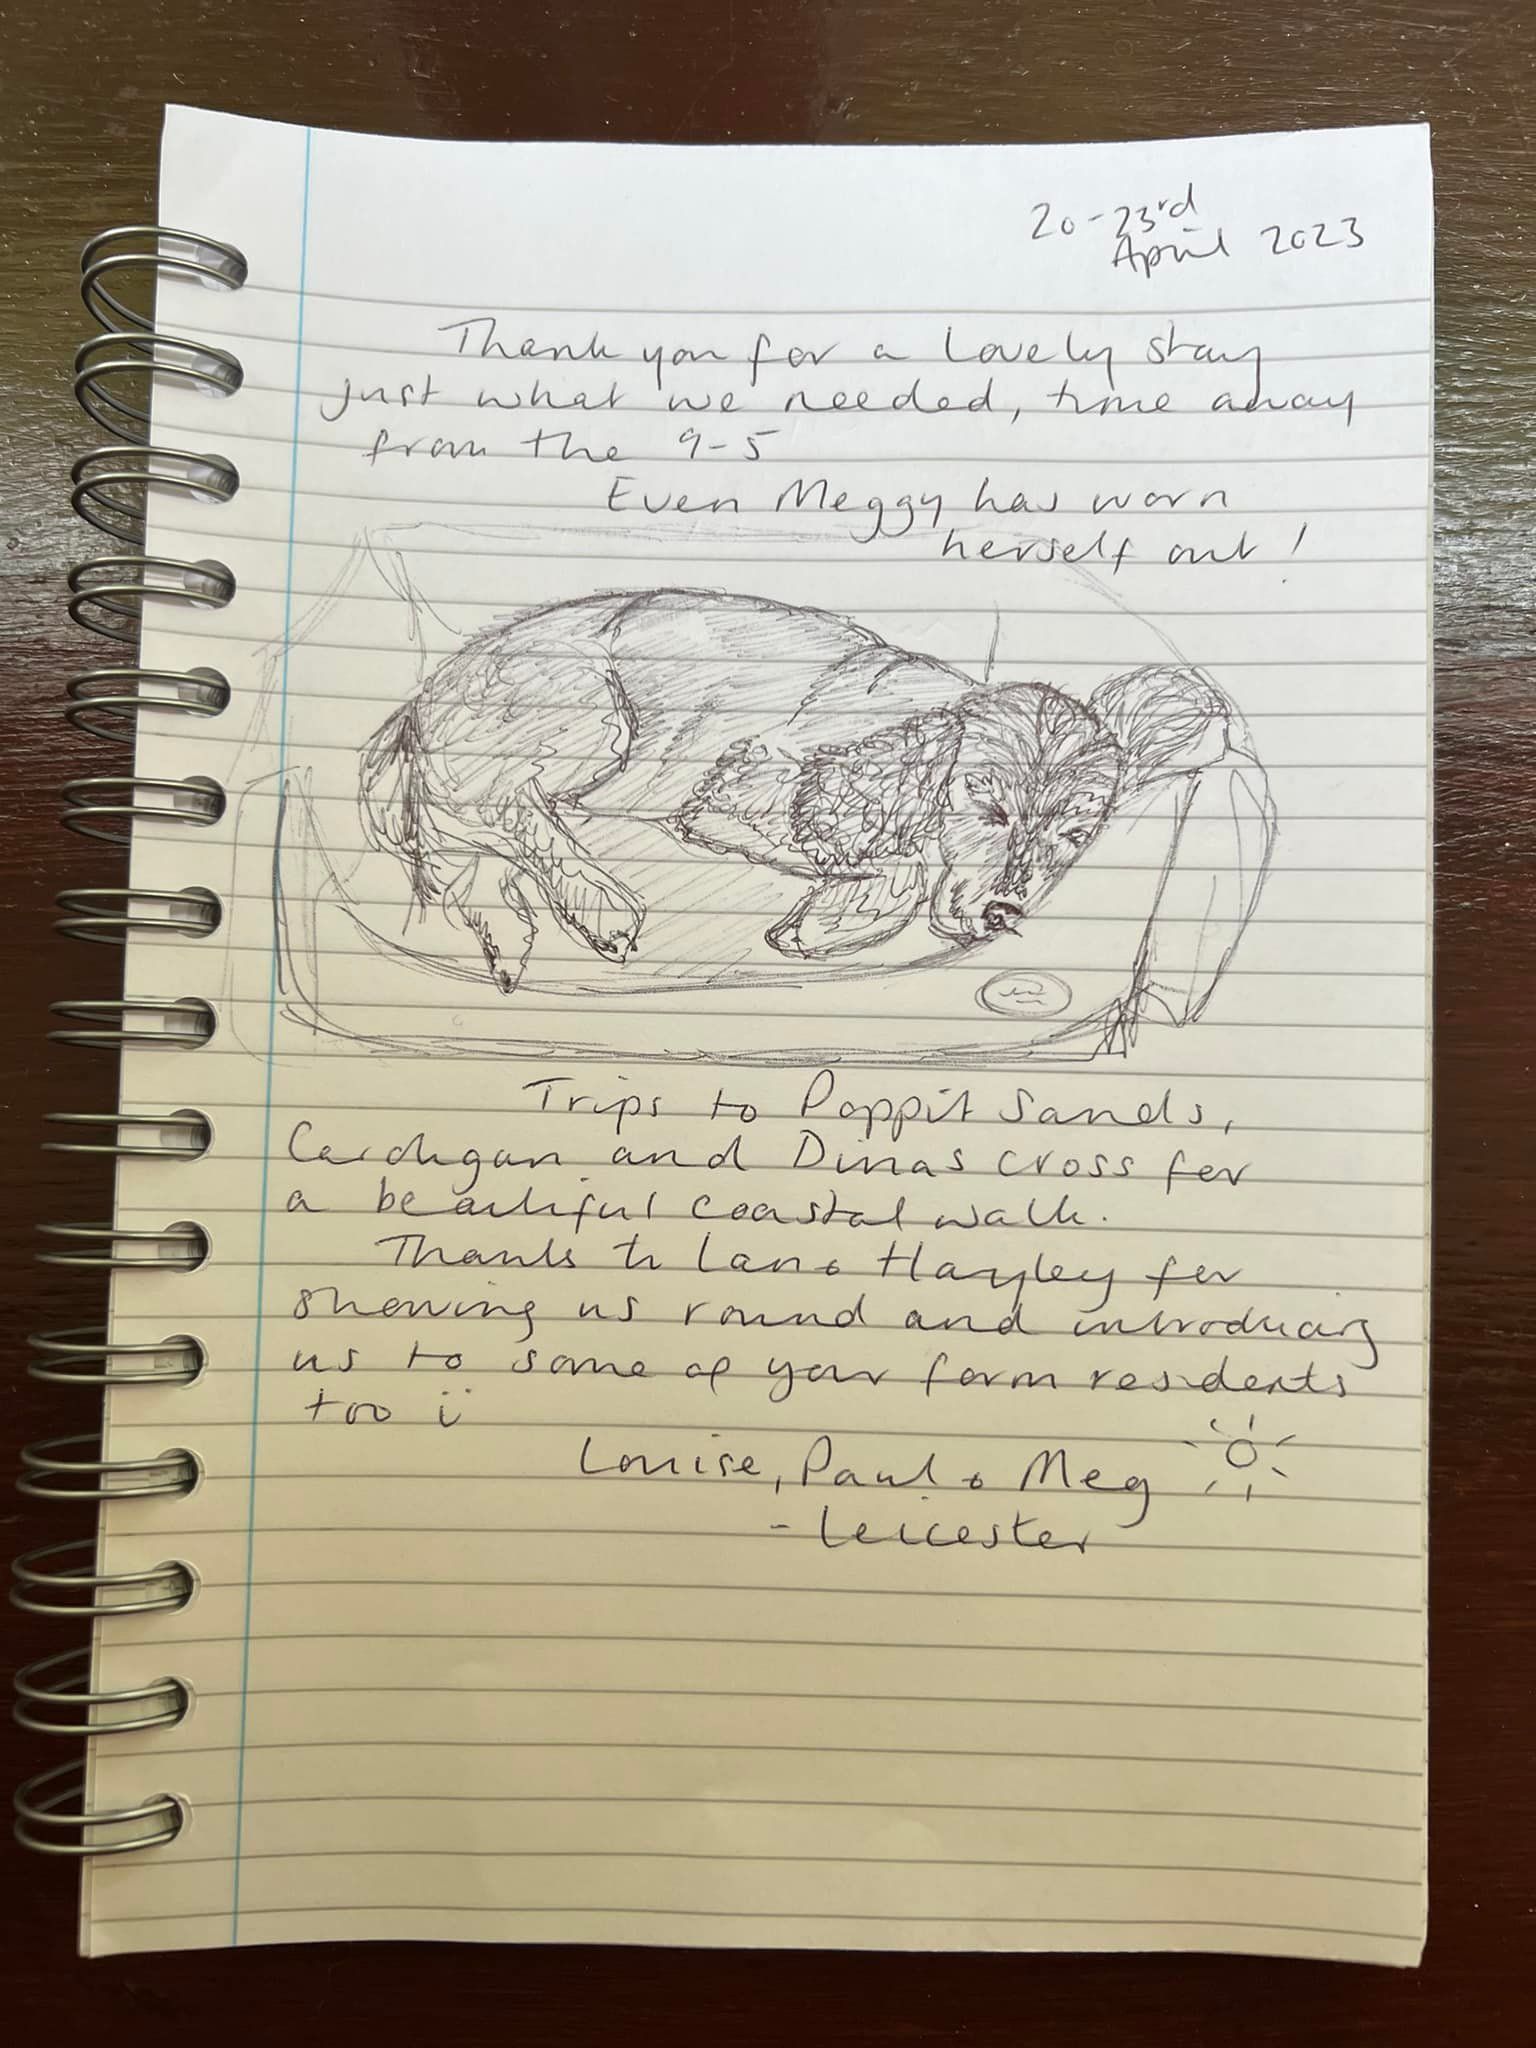 20-23rd
April 2023
Thank you for a lovely stay
just what we needed, time away
from the 9-5
Even Meggy has worn
herself out!
Trips to Poppit Sands,
Cardigan and Dinas Cross for
a beautiful coastal walk.
Thanks to Ian & Hayley for
showing us round and introducing
us to some of your farm residents
too
Louise, Paul & Meg
- Leicester